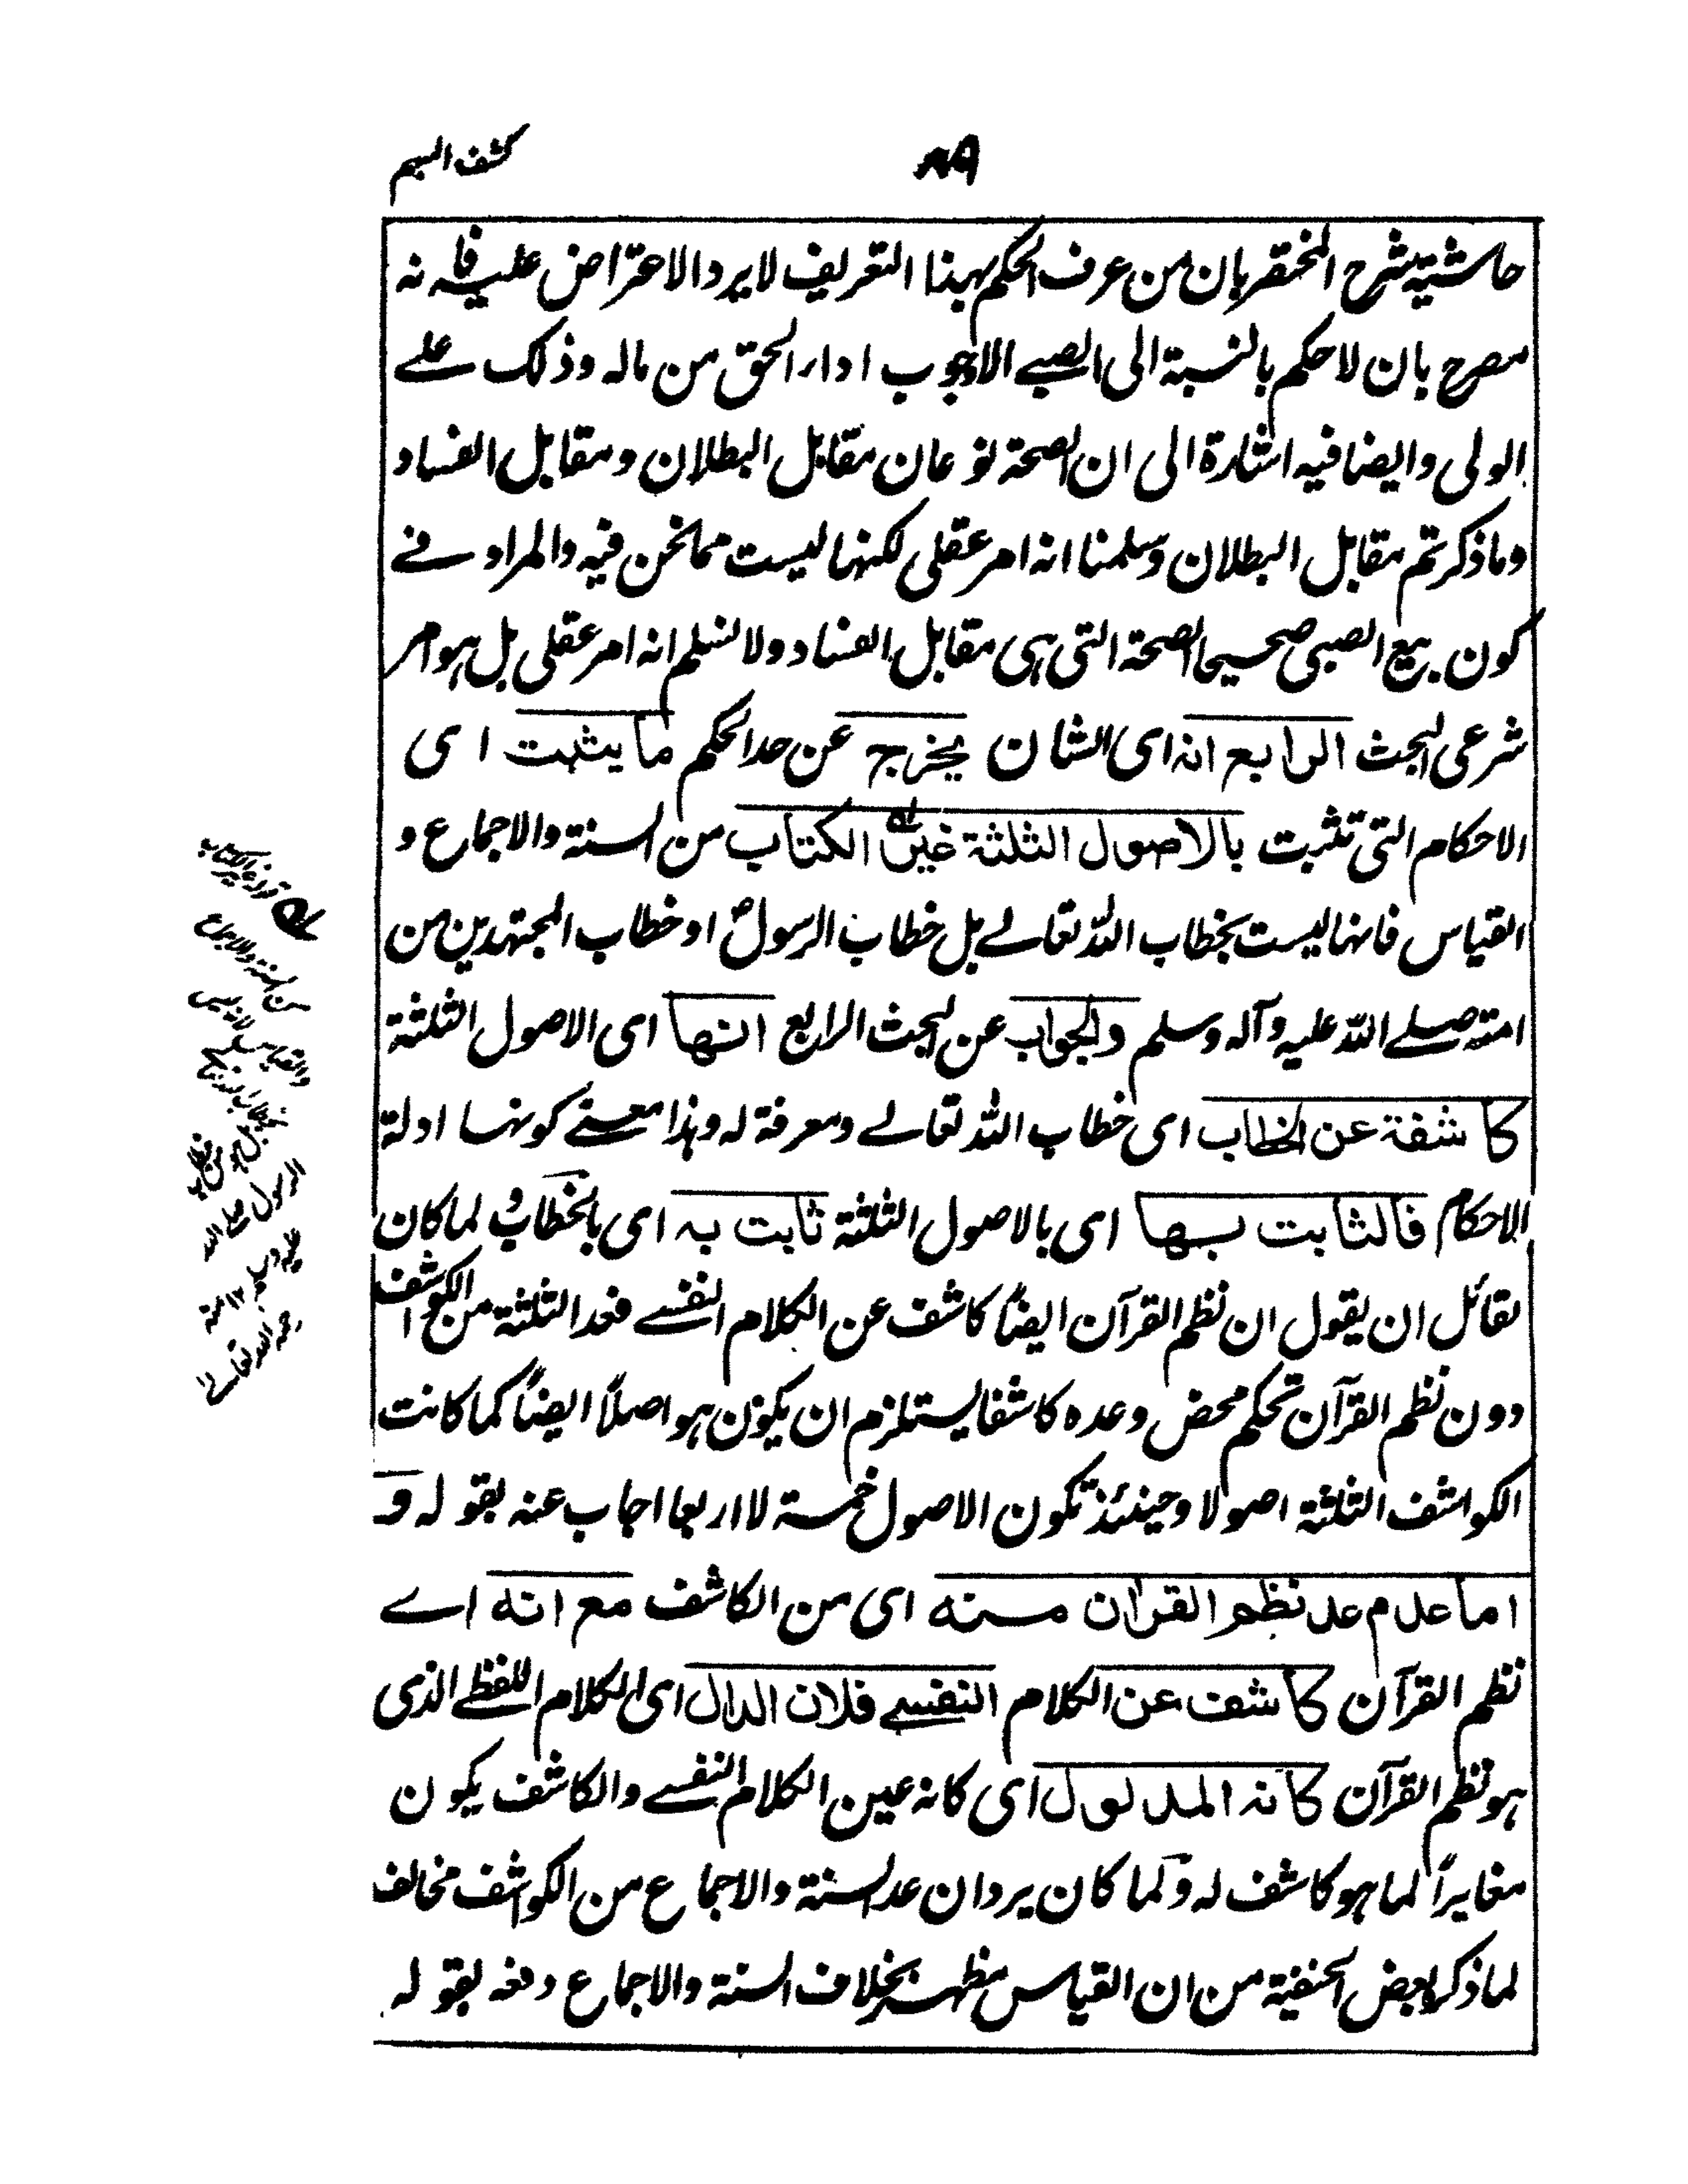 كشف المبهم
٨٩
حاشية شرح المختصر بان من عرف الحكم بهذا التعريف لا يرد الاعتراض عليه فانه
مصرح بان لا حكم بالنسبة الى الصبے الا وجوب اداء الحق من ماله وذلك علے
الولى وايضا فيه اشارة الى ان الصحة نوعان مقابل البطلان ومقابل الفساد
وما ذكرتم مقابل البطلان وسلمنا انه امر عقلى لكنها ليست مما نحن فيه والمراد فے
كون بيع الصبى صحيحا الصحة التى هى مقابل الفساد ولا نسلم انه امر عقلى بل هو امر
شرعى البحث الرابع انه اى الشان يخرج عن حد الحكم ما يثبت اى
الاحكام التى تثبت بالاصول الثلثة غير الكتاب من السنة والاجماع و
القياس فانها ليست بخطاب الله تعالے بل خطاب الرسولؐ او خطاب المجتهدين من
امته صلے الله عليه وآله وسلم والجواب عن البحث الرابع انها اى الاصول الثلثة
كاشفة عن الخطاب اى خطاب الله تعالے ومعرفة له وهذا معنے كونها ادلة
الاحكام فالثابت بها اى بالاصول الثلثة ثابت به اى بالخطاب و لما كان
لقائل ان يقول ان نظم القرآن ايضاً كاشف عن الكلام النفسے فعد الثلثة من الكواشف
دون نظم القرآن تحكم محض وعده كاشفا يستلزم ان يكون هو اصلاً ايضاً كما كانت
الكواشف الثلثة اصولا وحينئذ تكون الاصول خمسة لا اربعا اجاب عنه بقوله و
اما عدم عد نظم القرآن منه اى من الكاشف مع انه اے
نظم القرآن كاشف عن الكلام النفسے فلان الدال اى الكلام اللفظے الذى
هو نظم القرآن كانه المدلول اى كانه عين الكلام النفسے والكاشف يكون
مغايراً لما هو كاشف له ولما كان يرد ان عد السنة والاجماع من الكواشف مخالف
لما ذكر بعض الحنفية من ان القياس مظهر بخلاف السنة والاجماع دفعه بقوله
قوله غير الكتاب
من السنة والاجماع
والقياس لانه ليس
بخطاب الله تعالى
بل هو من خطاب
الرسول صلى الله
عليه وسلم ١٢ منه
رحمه الله تعالے